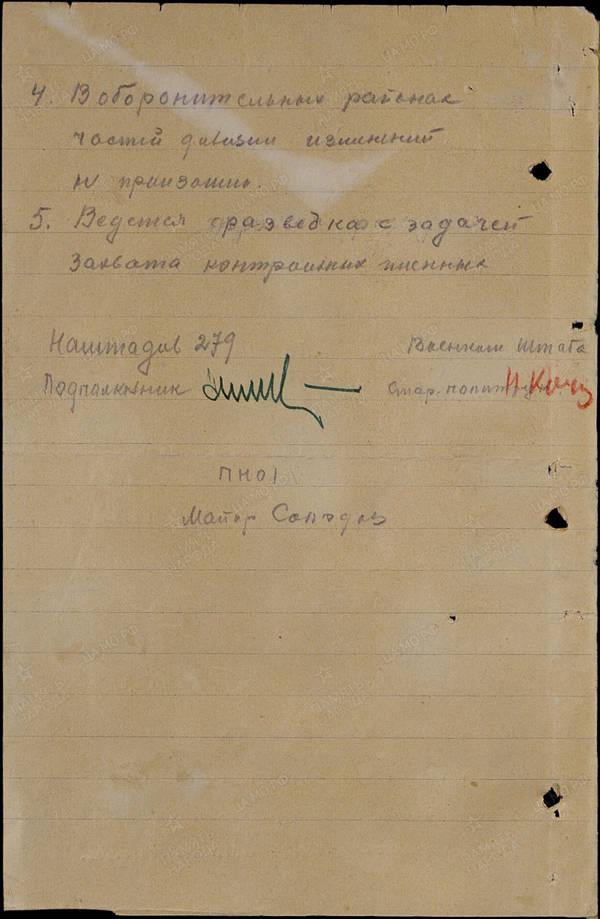 4. В оборонительных районах
частей дивизии изменений
не произошло.
5. Ведется разведка с задачей
Захвата контрольных пленных
Наштадив 279
Военком штаба
Подполковник
Стар. политрук
ПНО 1
Майор Солодов